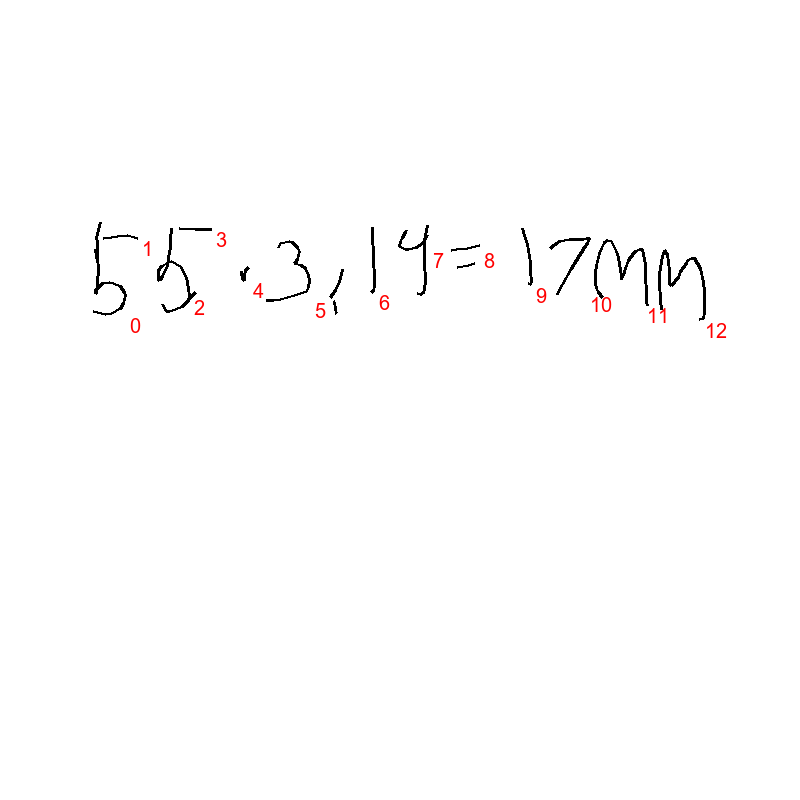 55 · 3,14 = 17mm
0 1 2 3 4 5 6 7 8 9 10 11 12